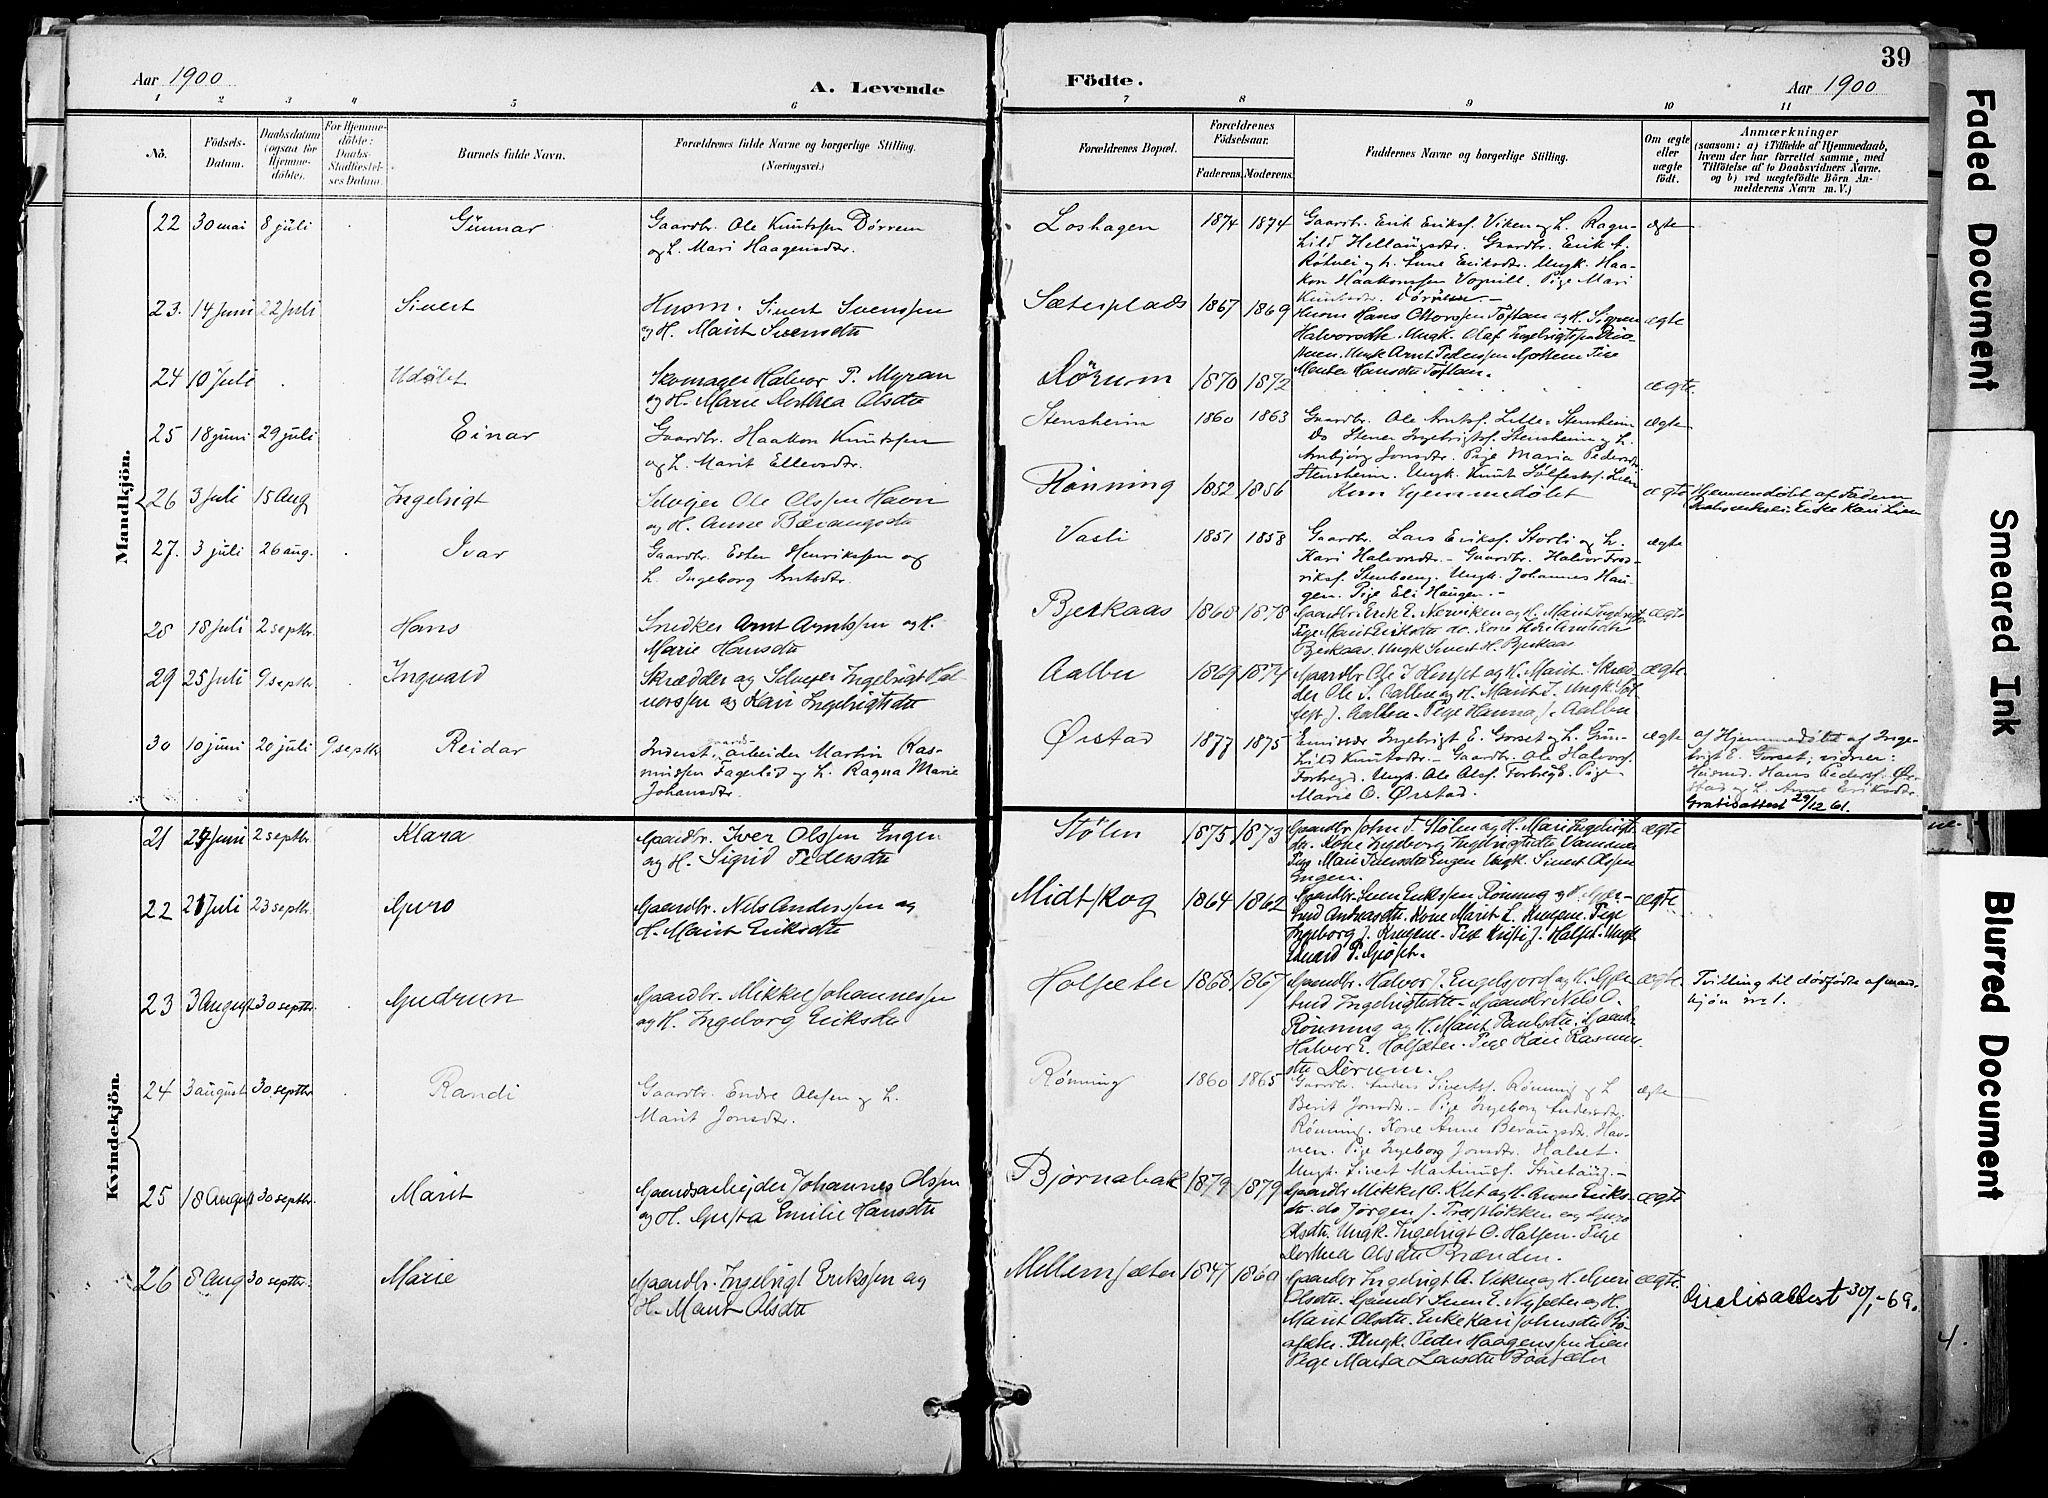 39
Aar 1900
A. Levende
Födte.
Aar 1900
1 2 3 4 5 6 7 8 9 10 11
No.
Födsels-
Datum.
Daabsdatum
(ogsaa for
Hjemme-
döbte).
For Hjemme-
döbte:
Daabs-
Stadfæstel-
ses Datum.
Barnets fulde Navn.
Forældrenes fulde Navne og borgerlige Stilling.
(Næringsvei.)
Forældrenes Bopæl.
Forældrenes
Födselsaar.
Faderens. Moderens.
Faddernes Navne og borgerlige Stilling.
Om ægte
eller
uægte
födt.
Anmærkninger
(saasom: a) i Tilfælde af Hjemmedaab,
hvem der har forrettet samme, med
Tilföielse af to Daabsvidners Navne,
og b) ved uægtefödte Börn An-
melderens Navn m. V.)
Mandkjön.
22 30 mai 8 juli Gunnar
Gaardbr. Ole Knutssen Dørrem
og h. Mari Haagensdtr.
Loshagen 1874 1874
Gaardbr. Erik Eriksf. Viken og h. Ragn-
hild Hellaugsdtr. Gaardbr. Erik A.
og h. Anne Eriksdtr. Ungk. Haa-
kon Haakonssen Vognill. Pige Mari
Knutsdtr. Dørrem.-
ægte
23. 14 Juni 22 Juli Sivert
Husm. Sivert Svenssen
og H. Marit Svensdtr
Sæterplads 1867 1869
Husm Hans Ottorssen Toftan og H. Sigren
Halvorsdtr. Ungk. Olaf Ingebrigtssen
Ungk Arnt Pedersen Pige
Hansdtr Toftan.
ægte
24 10 Juli Udøbt
Skomager Halvor P. Myran
og H. Marie Dorthea Olsdtr
Dørum 1870 1872
ægte
25 18 juni 29 juli Einar
Gaardbr. Haakon Knutssen
og h. Marit Ellevsdtr.
Stensheim 1860 1863
Gaardbr. Ole Arntsf. Lille-Stensheim
Do Stener Ingebrigtsf. Stensheim og h.
Ambjørg Jonsdtr. Pige Maria Pedersdtr
Stensheim. Ungk. Knut Sølfestsf. Lien
ægte
26 3 Juli 15 Aug Ingebrigt
Selvejer Ole Olssen Havn
og H. Anne Bærangsdtr
Rønning 1852 1856
Kun hjemmedøbt
ægte
Hjemmedøbt af Faderen
Enke Kari Lien
27. 3 juli 26 aug. Ivar
Gaardbr. Esten Henrikssen og
h. Ingeborg Arntsdtr.
Vasli 1851 1858
Gaardbr. Lars Eriksf. Storli og h.
Kari Halvorsdtr - Gaardbr. Halvor Fred-
riksf. Stenboeng. Ungk. Johannes Hau-
gen. Pige Eli Haugen.-
ægte
28 18 Juli 2 septbr. Hans
Snedker Arnt Arntssen og H.
Marie Hansdtr
Bjerkaas 1868 1878
Gaardbr. Erik E. Nerviken og H. Marit Ingebrigtsdtr.
Pige Marit Eriksdtr do. Kone
Bjerkaas. Ungk Sivert H. Bjerkaas
ægte
29 25 Juli 9 septbr. Ingvald
Skrædder og Selvejer Ingebrigt Hal-
vorssen og Kari Ingebrigtsdtr
Aalbu 1869 1874
Gaardbr Ole J. Horset og H. Marit. Skræd-
der Ole J. Aalbu og H. Marit J. Ungk. Søl-
fest J. Aalbu. Pige Hanna J. Aalbu
ægte
30 10 juni 20 juli 9 septbr Reidar
Inderst, gaardsarbeider Martin Ras-
mussen Fagerlid og h. Ragna Marie
Johansdtr.
Ørstad 1877 1875
Ingebrigt E. Gorset og h. Gun-
hild Knutsdtr. - Gaardbr. Ole Halvorsf.
Forbregd. Ungk. Ole Olsf. Forbregd. Pige
Marie O. Ørstad.
ægte
af Hjemmedøbt af Inge-
brigt E. Gorset; vidner:
Husmd. Hans Pedersf. Ør-
stad og h. Anne Eriksdtr.
Gratisattest 29/12 61.
Kvindekjön.
21 24 Juni 2 septbr. Klara
Gaardbr. Iver Olssen Engen
og H. Sigrid Pedersdtr
Stølen 1875 1873
Gaardbr John T. Stølen og H. Mari Ingebrigts-
dtr. Kone Ingeborg Ingebrigtsdtr
Pige Mari Iversdtr Engen Ungk. Sivert Olssen
Engen.
ægte
22 21 Juli 23 septbr. Guro
Gaardbr. Nils Anderssen og
H. Marit Eriksdtr
Midtskog 1864 1862
Gaardbr. Sven Erikssen Rønning og H. Gjer-
trud Andreasdtr. Kone Marit L. Krugene. Pige
Ingeborg J. Krugene. Pige Kristi J. Halset. Ungk
Edvard P. Gjøset.
ægte
23 3 August 30 septbr. Gudrun
Gaardbr. Mikkel Johannessen
og H. Ingeborg Eriksdtr
Holsæter 1868 1867
Gaardbr. Halvor J. Engelsjord og H. Gjer-
trud Ingebrigtsdtr. Gaardbr Nils O.
Rønning og H. Marit Paulsdtr. Gaardb.
Halvor E. Holsæter. Pige Kari Rasmus-
dtr Dørum.
ægte.
Tvilling til dødfødte af mand-
kjøn no 1.
24 3 august 30 septbr Randi
Gaardbr. Endre Olssen og h.
Marit Jonsdtr.
Rønning 1860 1865
Gaardbr. Anders Sivertsf. Rønning og h
Berit Jonsdtr. - Pige Ingeborg Andersdtr.
Rønning. Kone Anne Berangsdtr. Hav-
nen. Pige Ingeborg Jonsdtr. Halset.
Ungk. Sivert Martinusf. Stuehaug.-
ægte
25 18 August 30 septbr. Marit
Gaardsarbejder Johannes Olssen
og H. Gusta Emilie Hansdtr
Bjørnabak 1879 1879
Gaardbr Mikkel O. Klet og H. Anne Eriks-
dtr. do Jørgen J. Træthøkken og Guro
Olsdtr. Ungk. Ingebrigt O. Halsen. Pige
Dorthea Olsdtr Brænden.
ægte
26 8 Aug 30 septbr. Marie
Gaardbr. Ingebrigt Erikssen og
H. Marit Olsdtr
Mellemsæter 1847 1860
Gaardbr Ingebrigt A. Viken og H. Guri
Olsdtr. Gaardbr Sven E. Nysæter og H.
Marit Olsdtr. Enke Kari Johnsdtr Bø-
sæter. Ungk. Peder Haagenssen Lien
Pige Marta Larsdtr Bøasæter
ægte.
Gratisattest 30/1-69.
4.
Faded Document
Smeared Ink
Blurred Document